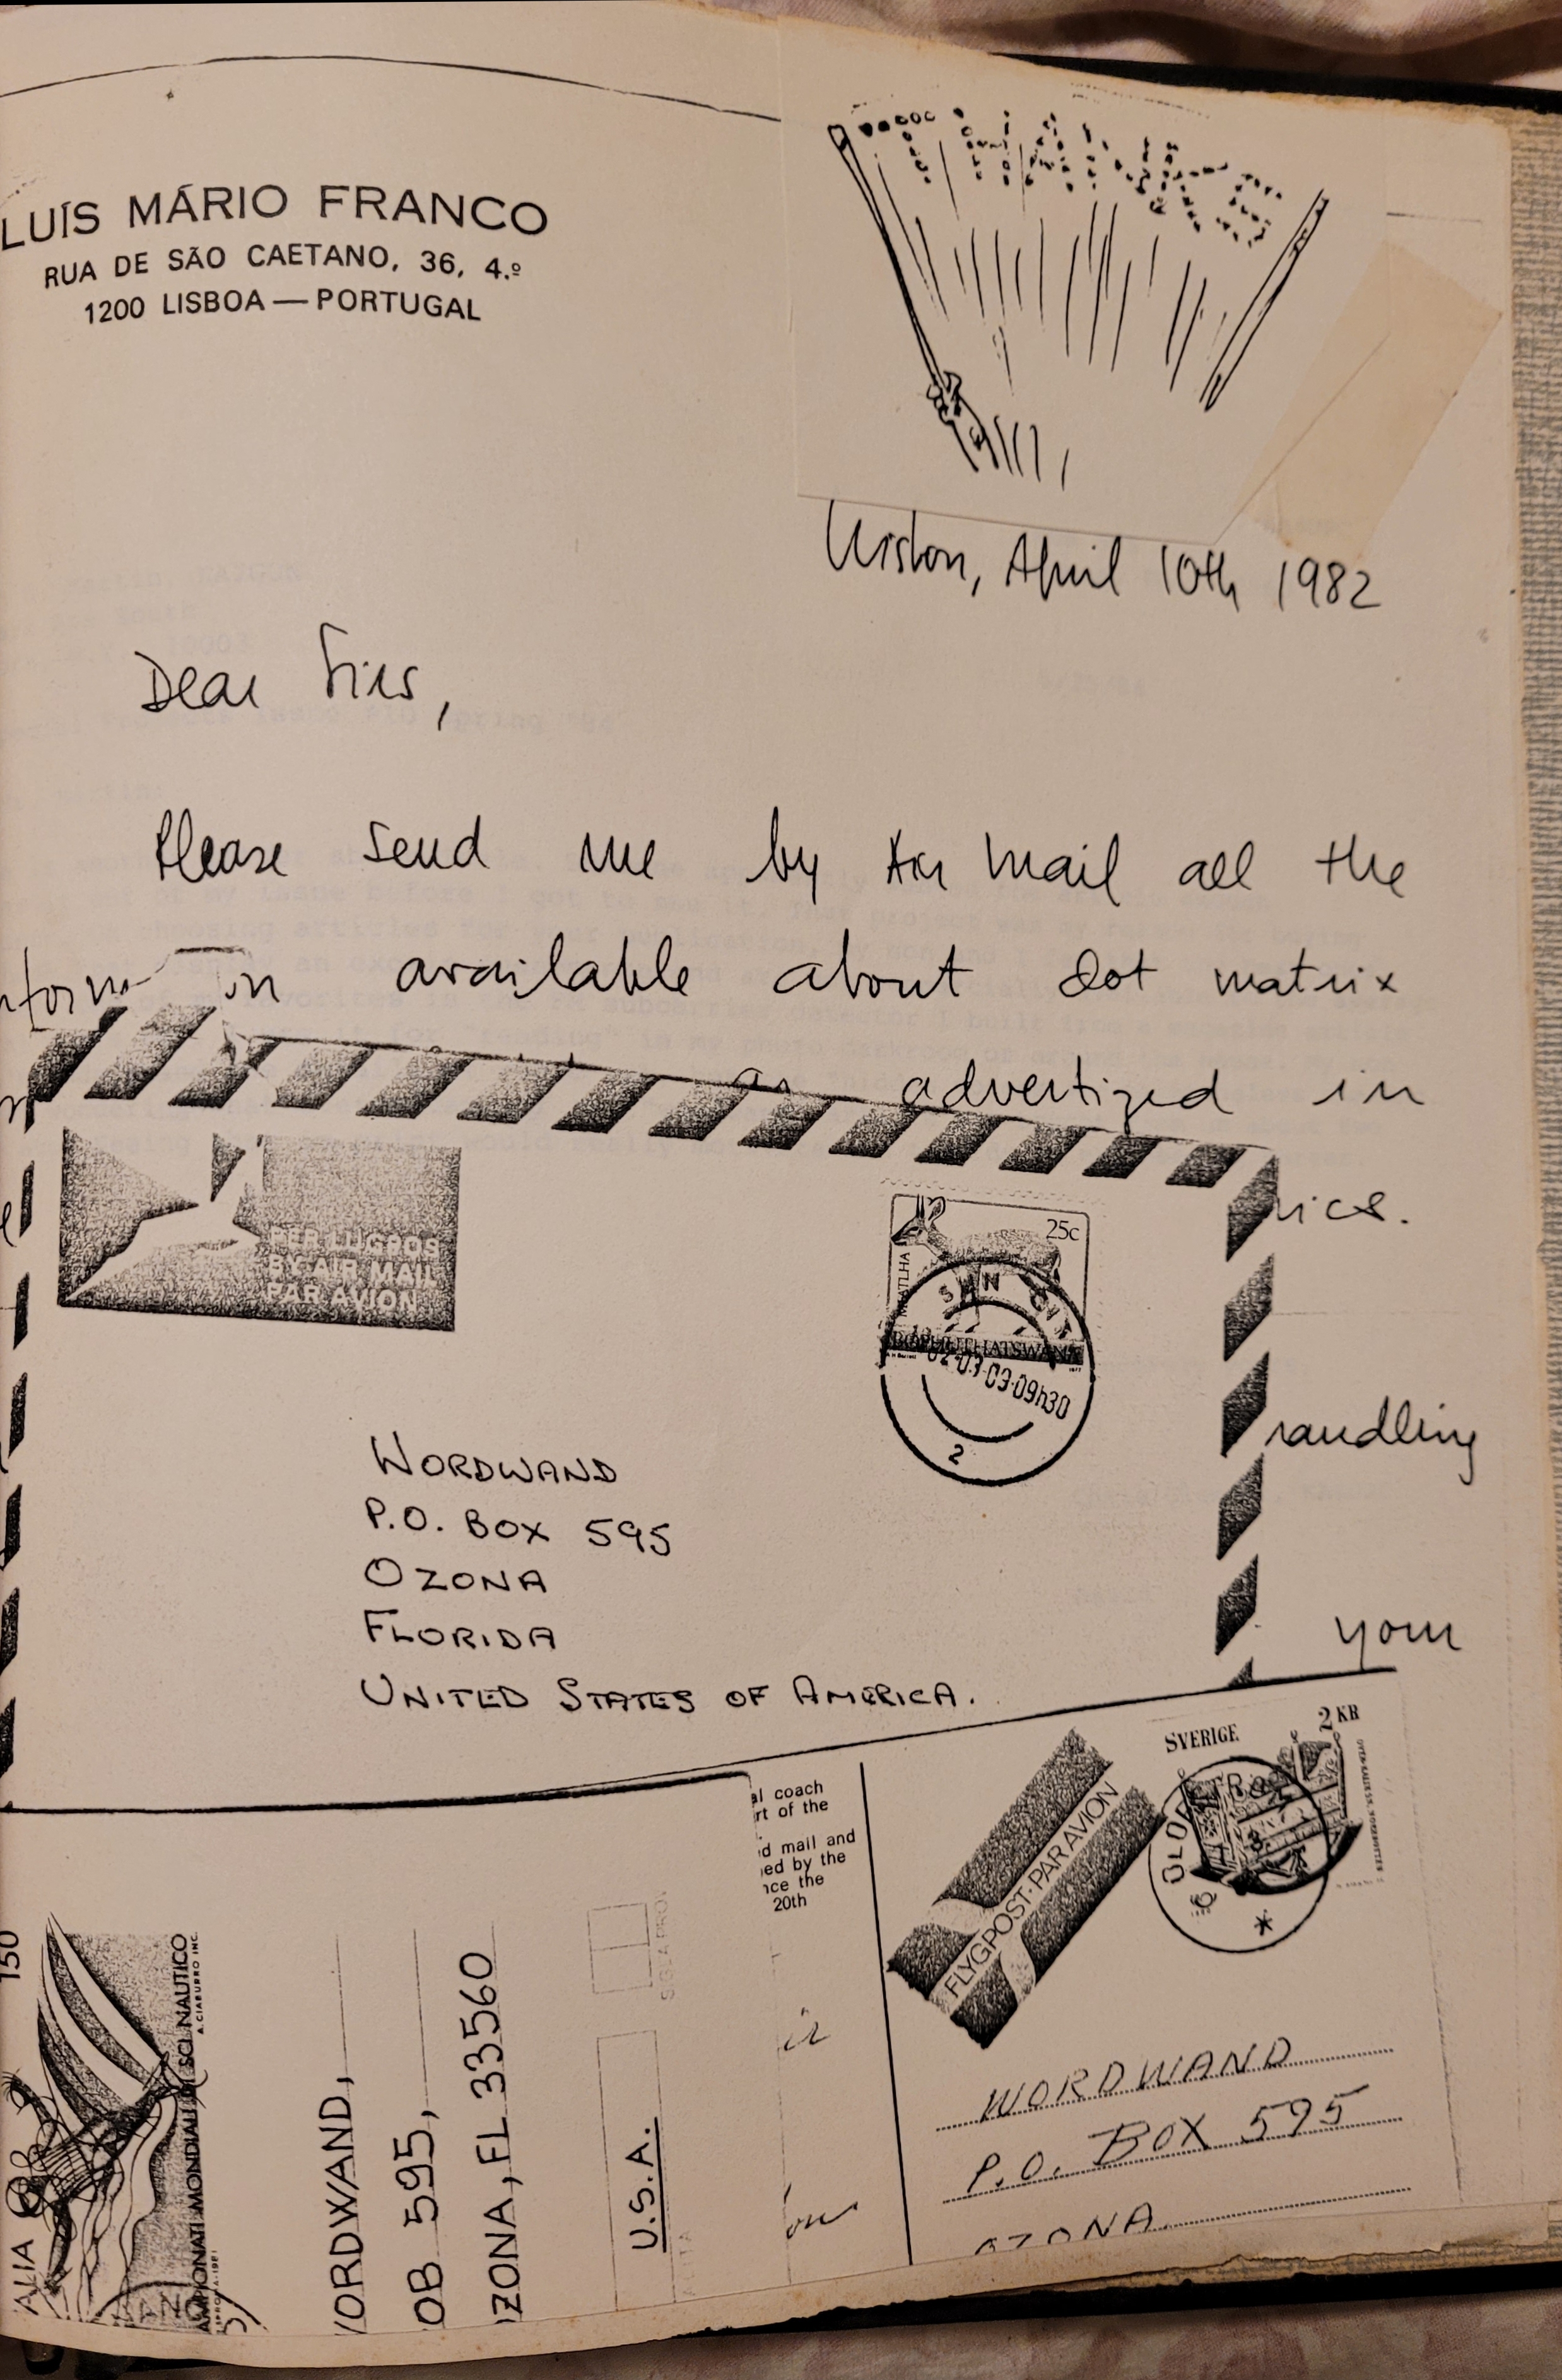 LUÍS MÁRIO FRANCO
RUA DE SÃO CAETANO, 36, 4.º
1200 LISBOA — PORTUGAL
THANKS
Lisbon, April 10th 1982
Dear Sirs,
Please send me by Air Mail all the
available about dot matrix
as advertized in
PER LUGPOS
BY AIR MAIL
PAR AVION
25c
SUN CITY
BOPHUTHATSWANA
09h30
2
your
WORDWAND
P.O. BOX 595
OZONA
FLORIDA
UNITED STATES OF AMERICA.
al coach
rt of the
d mail and
ed by the
nce the
20th
FLYGPOST·PAR AVION
SVERIGE 2 KR
WORDWAND
P.O. BOX 595
OZONA
150
ALIA
SCI NAUTICO
A. CIABURRO INC.
AMPIONATI MONDIALI DI
ORDWAND,
OB 595,
ZONA, FL 33560
U.S.A.